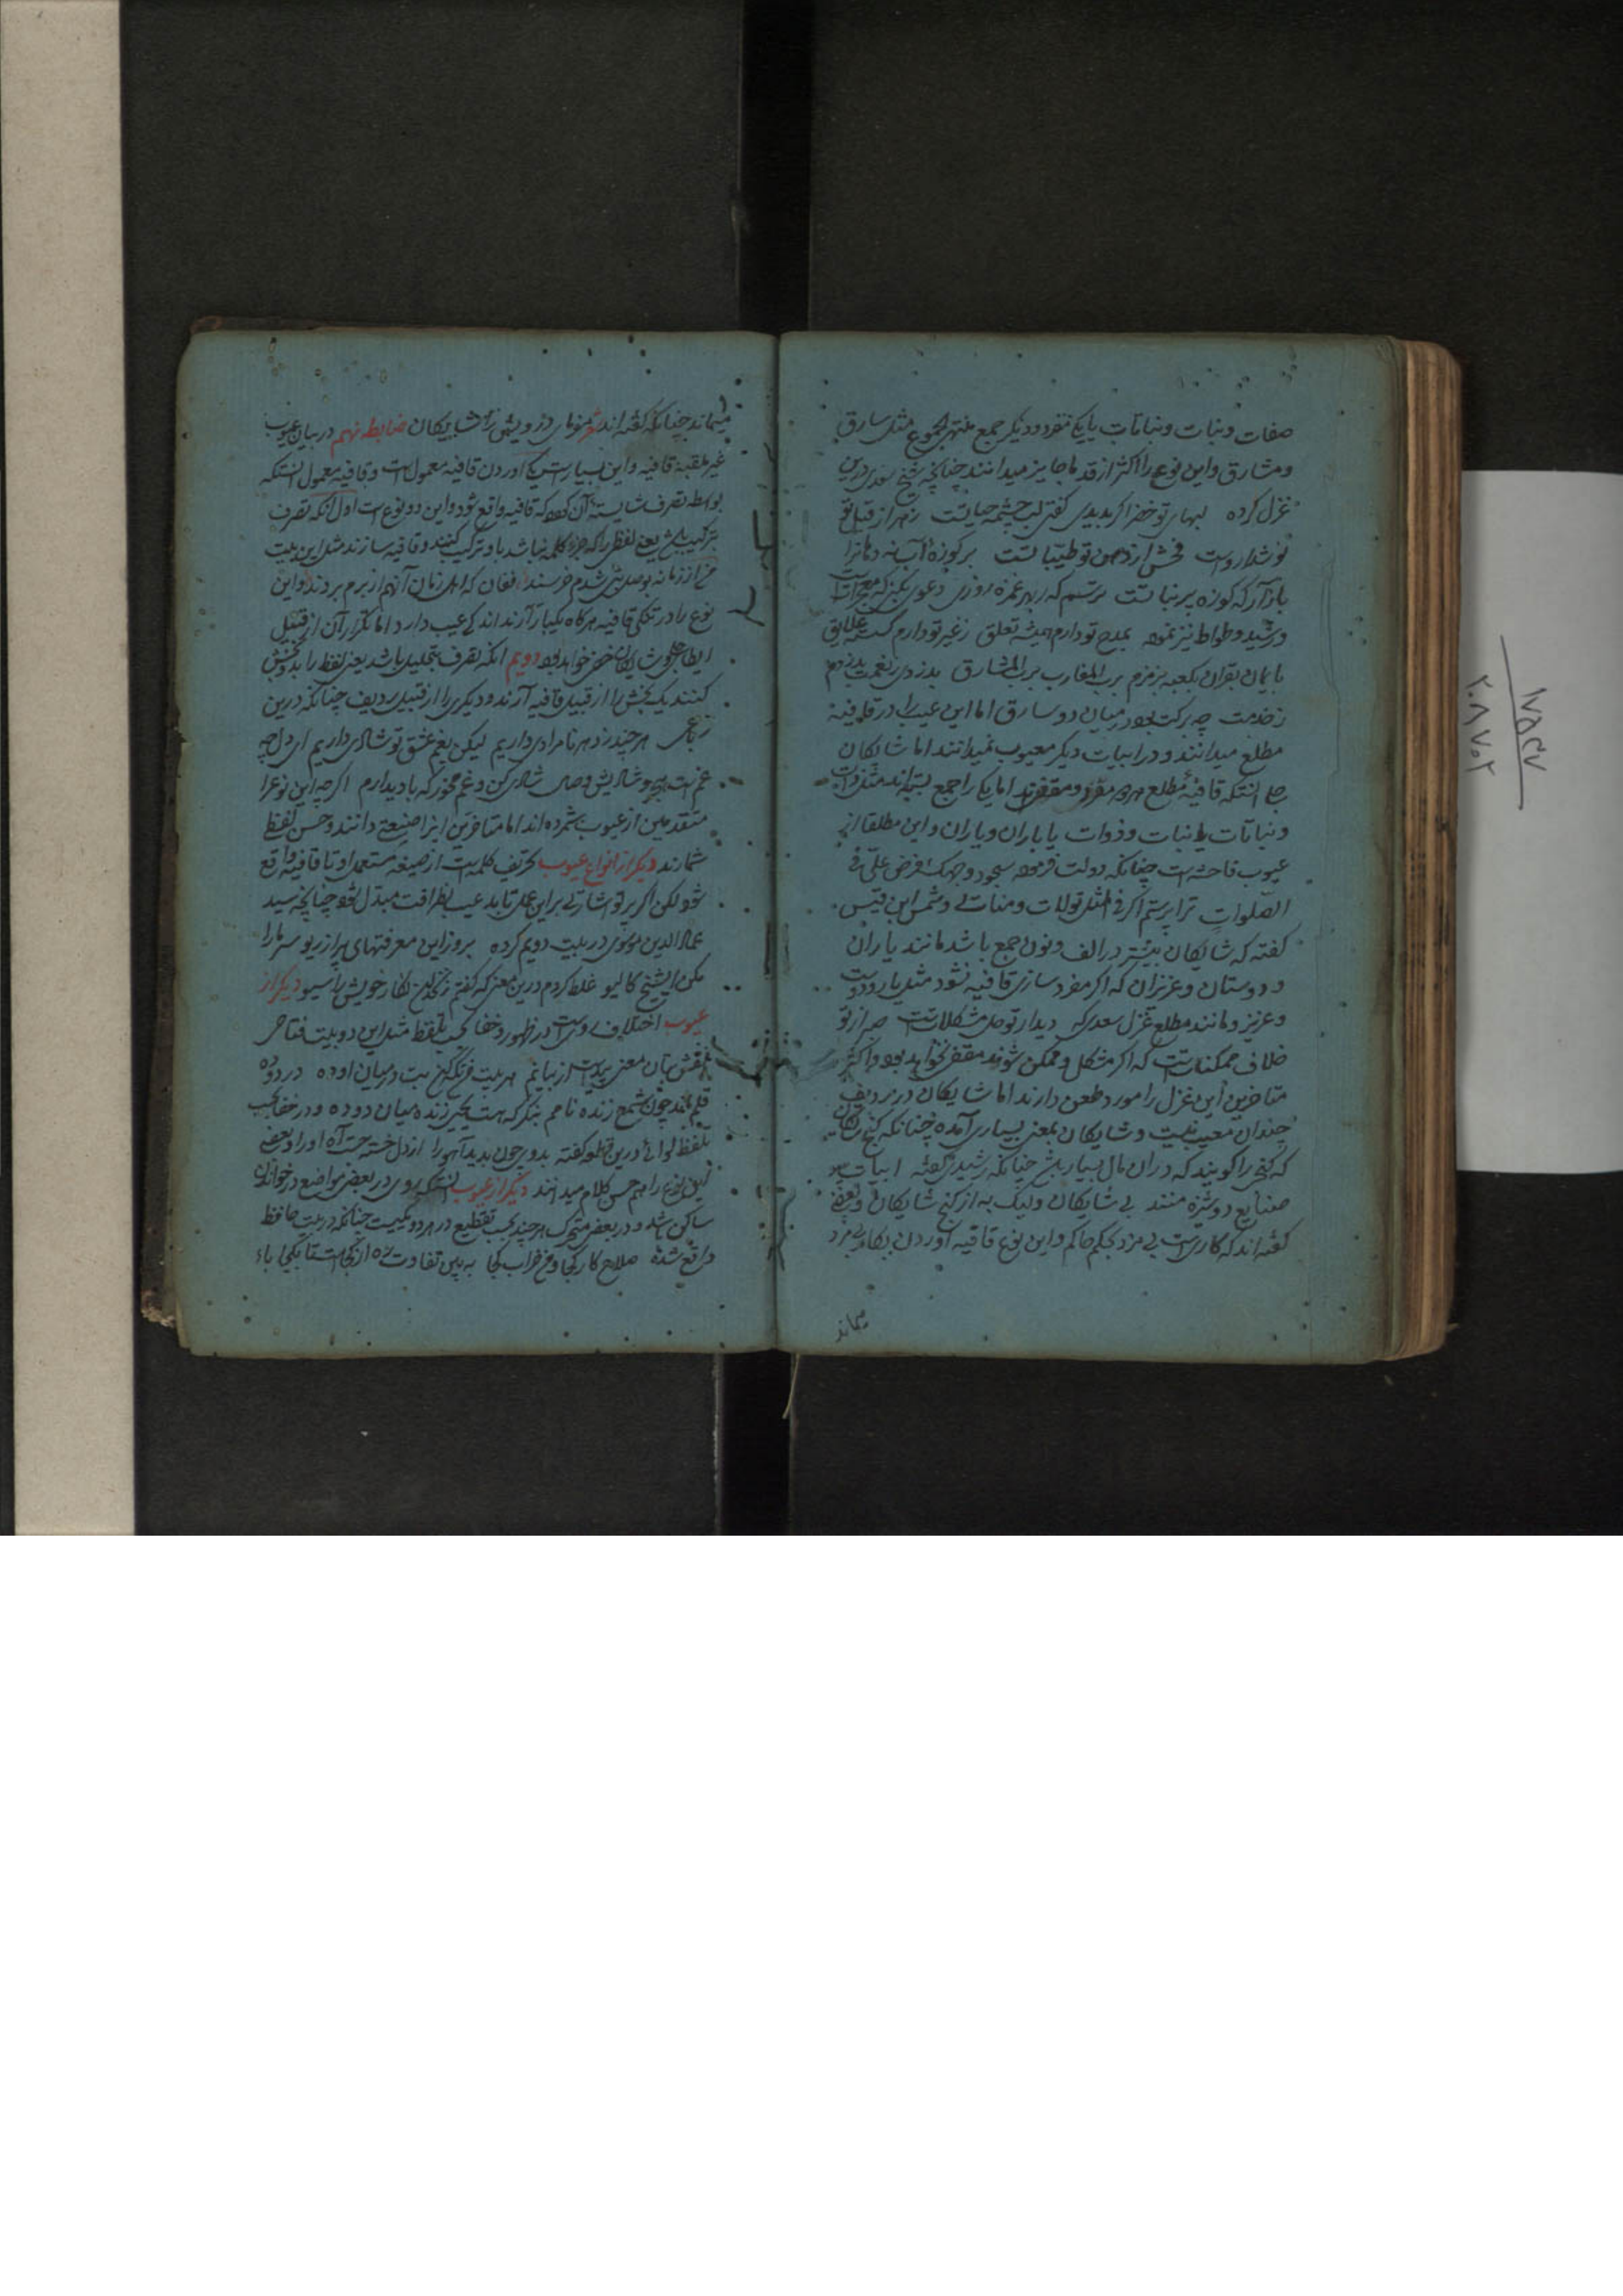 صفات و نبات و نباتات یا یکی مفرد و دیگر جمع منتهی الجموع مثل سارق
و مشارق و این نوع را اکثر از قدما جایز میدانند چنانچه شیخ سعدی درین
غزل کرده لبهای تو خضر اگر بدیدی گفتی لب چشمه حیاتست زهر از قبل تو
نوشداروست فحش از دهن تو طیباتست بر کوزه آب نه دهانرا
باز آر که کوزه پر نباتست ترسم که بغمزه روزی دعوی بکنی که معجزاتست
و رشید وطواط نیز نموده بمدح تو دارم همیشه تعلق ز غیر تو دارم گسسته علایق
بایمان بقران بکعبه بزمزم برب المغارب برب المشارق
ز خدمت چه برکت بود در میان دو سارق اما این عیب را در قافیه
مطلع میدانند و در ابیات دیگر معیوب نمیدانند اما شایکان
جلی آنستکه قافیهٔ مطلع هر دو مفرد و مقفی اند اما یکی را جمع بسته اند مثل ذات
و نباتات یا نبات و ذوات یا باران و یاران و این مطلقا از
عیوب فاحشه است چنانکه دولت فرموده سجود وجهک افرض علی فی
الصلوات ترا پرستم اگر فی المثل تو لات و منات لی و شمس ابن قیس
گفته که شایکان بیشتر در الف و نون جمع باشد مانند یاران
و دوستان و عزیزان که اگر مفرد سازی قافیه نشود مثل یار و دوست
و عزیز و مانند مطلع غزل سعدی که دیدار تو حل مشکلاتست صبر از تو
خلاف ممکناتست که اگر مشکل و ممکن شوند مقفی نخواهد بود و اکثر
متاخرین این غزل را مورد طعن دارند اما شایکان در ردیف
چندان معیب نیست و شایکان بمعنی بسیاری آمده چنانکه گنج شایکان
که گنجی را گویند که در آن مال بسیار باشد چنانکه رشیدی گفته ابیات
صنایع دوشیزه منند بی شایکان ولیک به از گنج شایکان و بعضی
گفته اند که کاریست بی مزد بحکم حاکم و این نوع قافیه آوردن بکار بی مزد
میماند
میماند چنانکه گفته اند شعر شایکان ضابطه نهم در بیان عیوب
غیر ملقبه قافیه و این بسیار است یکی آوردن قافیه معمول است و قافیه معمول آنستکه
بواسطه تصرف شایستهٔ آن گردد که قافیه واقع شود و این دو نوع است اول آنکه تصرف
بترکیب باشد یعنی لفظی را که جزء کلمه نباشد با او ترکیب کنند و قافیه سازند مثل این بیت
من از زمانه بوصل بتی شدم خرسند فغان که اهل زمان آنهم از برم بردند و این
نوع را در تنگی قافیه هرگاه یکبار آرند اندکی عیب دارد اما تکرار آن از قبیل
ایطاء جلی و شایکان خواهد بود دویم آنکه تصرف بتحلیل باشد یعنی لفظ را بدو بخش
کنند یک بخش را از قبیل قافیه آرند و دیگری را از قبیل ردیف چنانکه درین
رباعی هر چند ز دهر نامرادی داریم لیکن بغم عشق تو شادی داریم ای دل چه
غم است شادی کن و غم مخور که با دیدارم اگر چه این نوع را
متقدمین از عیوب شمرده اند اما متاخرین اینرا صنعت دانند و حسن لفظ
شمارند دیگر از انواع عیوب تحریف کلمه است از صیغه مستعمل او تا قافیه واقع
شود لکن اگر پرتو اشارتی بر این عمل تابد عیب بظرافت مبدل شود چنانچه سید
عماد الدین موسوی در بیت دویم کرده بروز این معرفتهای پر از ریو سر ما را
مکن ای شیخ کالیو غلط کردم درین معنی که گفتم زنخدان نگار خویش را سیو دیگر از
عیوب اختلاف رویست در ظهور و خفا بحسب تلفظ مثل این دو بیت فتاحی
نقش بتان معنی پیداست از بیانم هر بیت فرنگیم بت در میان او ده در دوده
قلم بند چون شمع زنده نامم بنگر که هست یحیی زنده میان دوده و در خفا بحسب
تلفظ لوائی درین قطعه گفته بدوی چون بدید آهو را از دل خسته جست آه او را و بعضی
این نوع را هم حسن کلام میدانند دیگر از عیوب آنستکه روی در بعضی مواضع در خواندن
ساکن باشد و در بعضی متحرک هر چند بحسب تقطیع در هر دو یکیست چنانکه در بیت حافظ
واقع شده صلاح کار کجا و من خراب کجا به بین تفاوت ره از کجاست تا بکجا باء
۱۷۵۴۷
۲۰۸۷۰۲